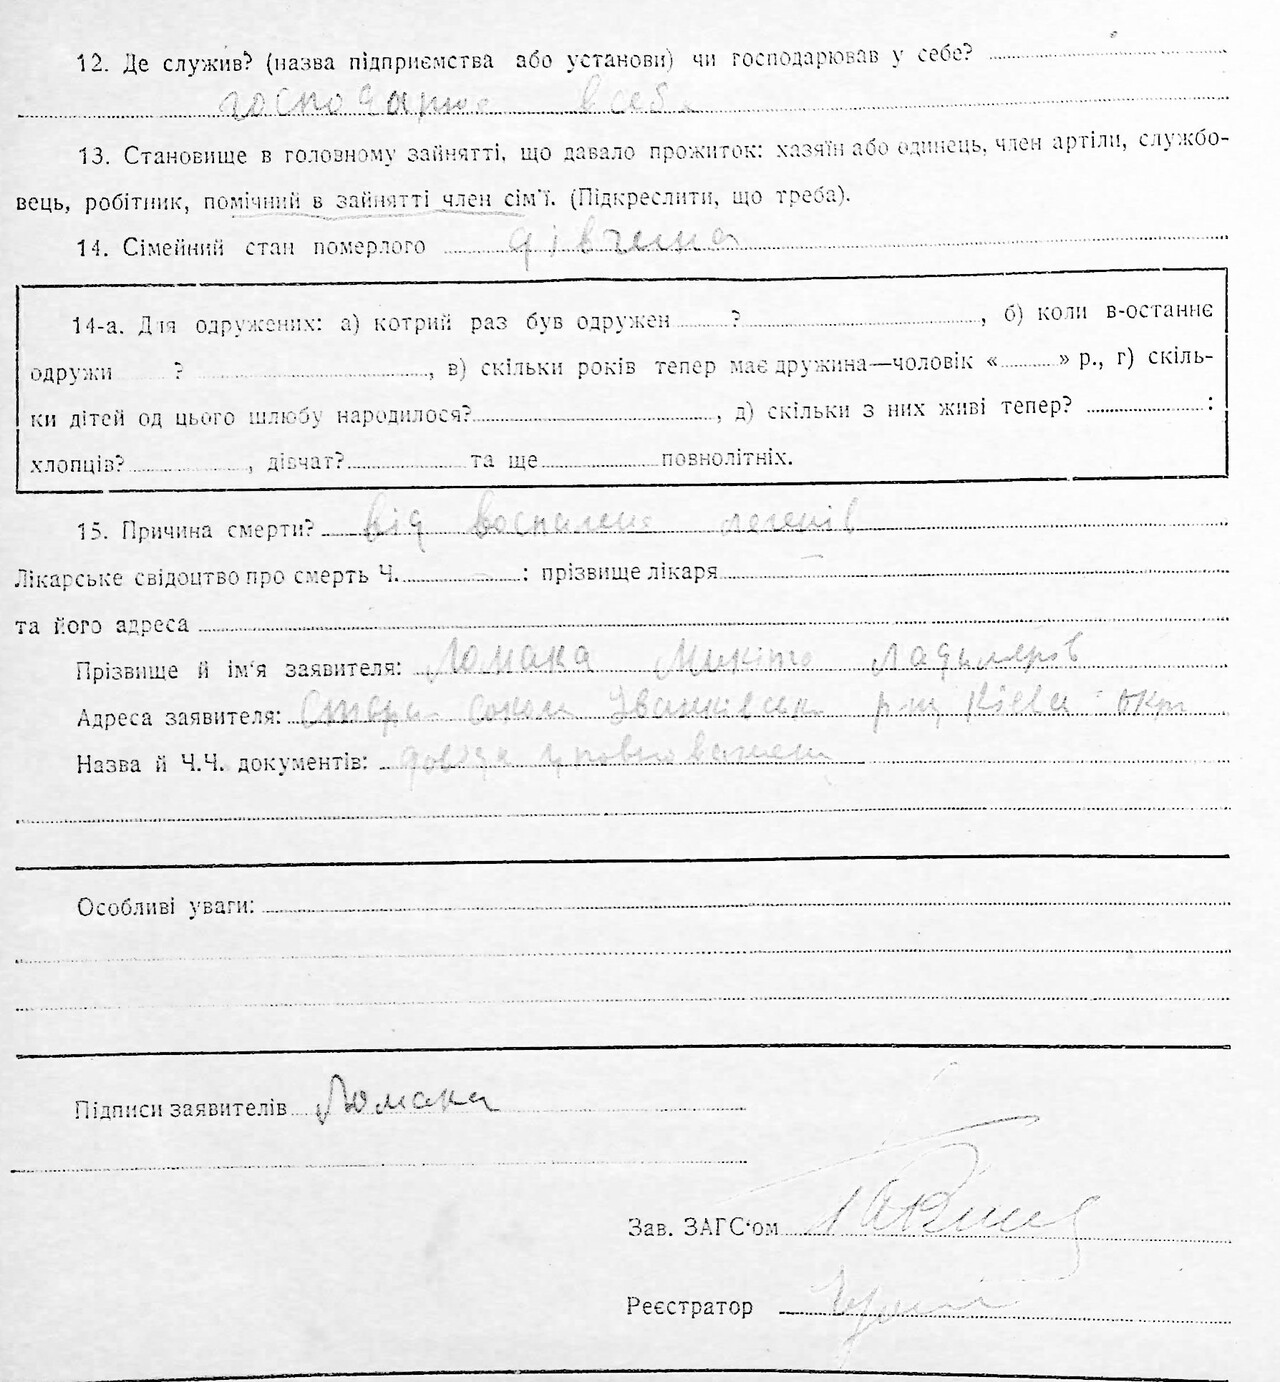 12. Де служив? (назва підприємства або установи) чи господарював у себе?
господарює в себе
13. Становище в головному зайнятті, що давало прожиток: хазяїн або одинець, член артіли, службо-
вець, робітник, помічний в зайнятті член сім'ї. (Підкреслити, що треба).
14. Сімейний стан померлого дівчина
14-а. Для одружених: а) котрий раз був одружен ? , б) коли в-останнє
одружи ? , в) скільки років тепер має дружина—чоловік « » р., г) скіль-
ки дітей од цього шлюбу народилося? , д) скільки з них живі тепер? :
хлопців? , дівчат? та ще повнолітніх.
15. Причина смерти? від воспаленя легенів
Лікарське свідоцтво про смерть Ч. — : прізвище лікаря —
та його адреса
Прізвище й ім'я заявителя: Ломака Микита
Адреса заявителя: Стара Іванківськ р-ну Київ окр
Назва й Ч.Ч. документів:
Особливі уваги:
Підписи заявителів Ломака
Зав. ЗАГС'ом
Реєстратор